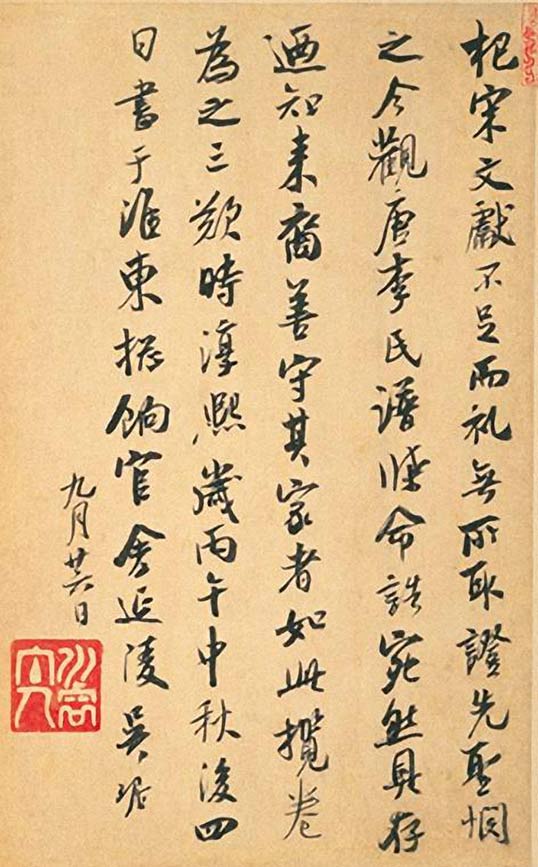 杞宋文獻不足而礼無所取證先聖憫
之今觀唐李氏譜牒命誥宛然具存
迺知来裔善守其家者如此攬卷
為之三歎時淳熙歲丙午中秋後四
日書于淮東揔餉官舍延陵吴琚
九月廿六日